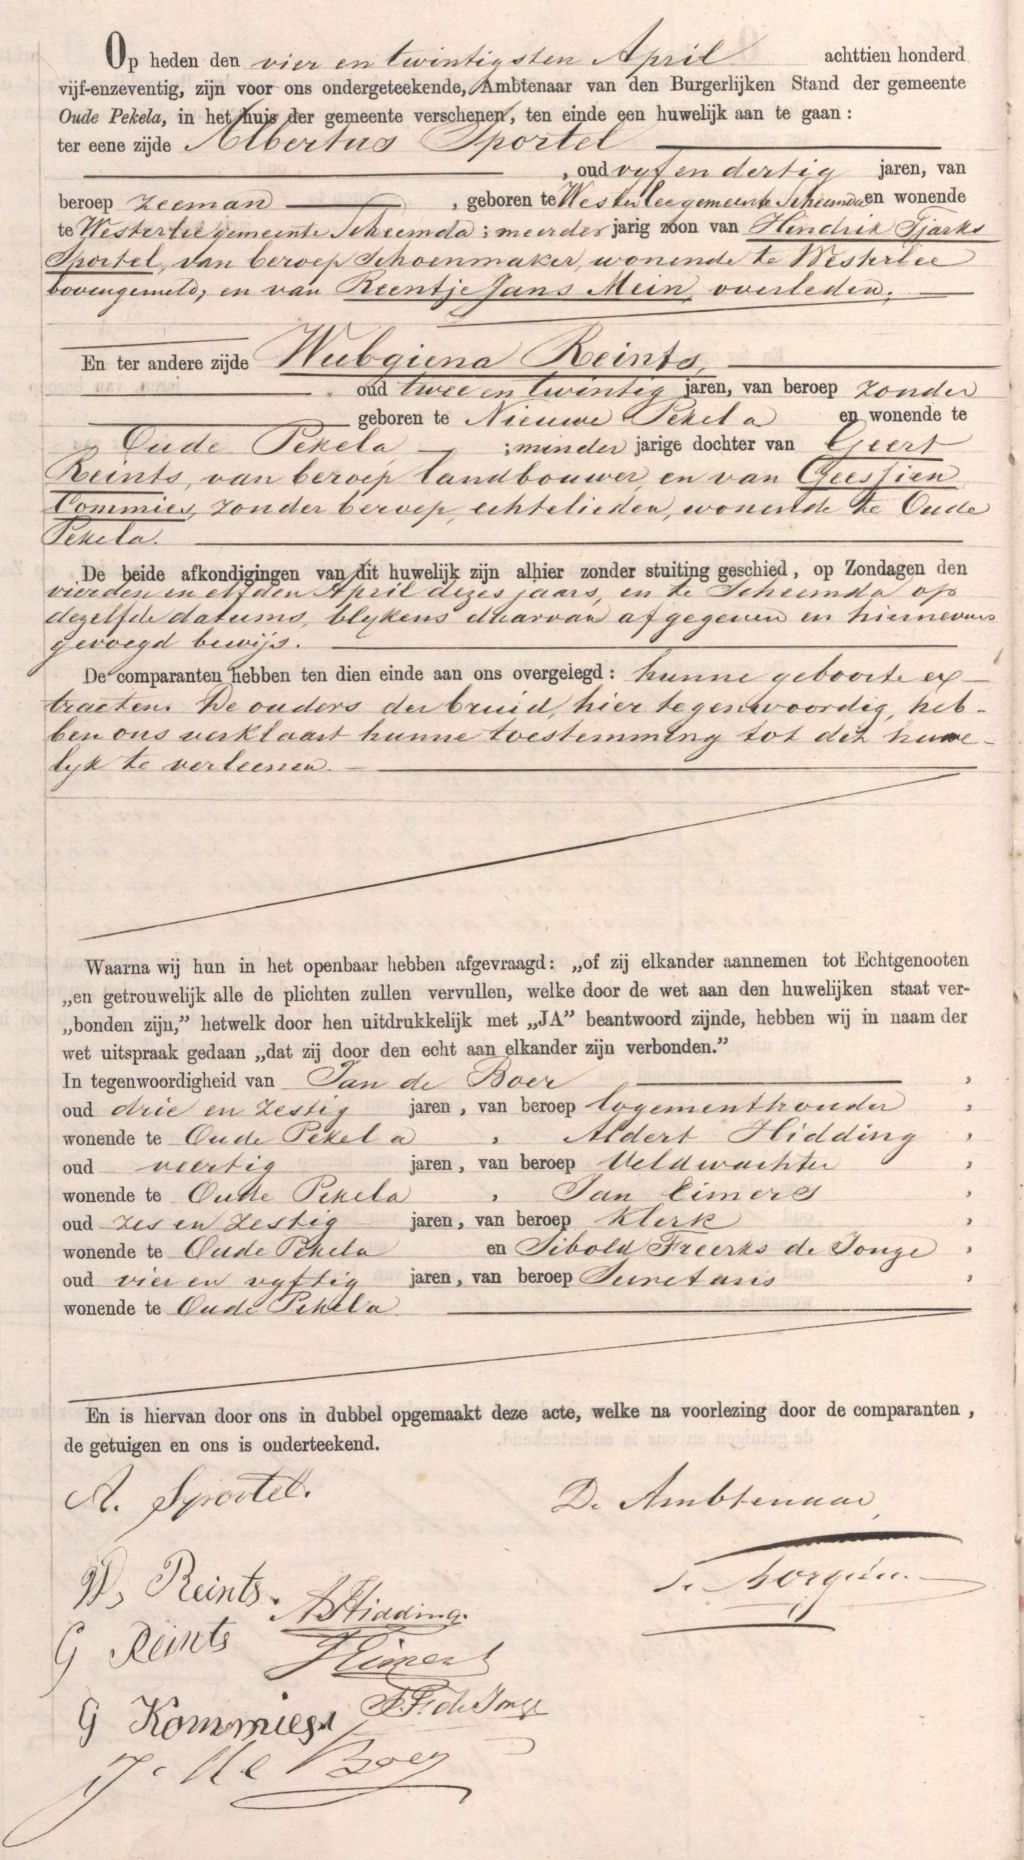 Op heden den vier en twintigsten April achttien honderd
vijf-enzeventig, zijn voor ons ondergeteekende, Ambtenaar van den Burgerlijken Stand der gemeente
Oude Pekela, in het huis der gemeente verschenen, ten einde een huwelijk aan te gaan:
ter eene zijde Albertus Sportel
, oud vyf en dertig jaren, van
beroep zeeman , geboren te Westerlee gemeente Scheemda en wonende
te Westerlee gemeente Scheemda ; meerder jarig zoon van Hendrik Tjarks
Sportel, van beroep Schoenmaker, wonende te Westerlee
bovengemeld, en van Reentje Jans Mein, overleden.
En ter andere zijde Wubgiena Reints,
oud twee en twintig jaren, van beroep zonder
geboren te Nieuwe Pekela en wonende te
Oude Pekela ; minder jarige dochter van Geert
Reints, van beroep landbouwer, en van Geessien
Commies, zonder beroep, echtelieden, wonende te Oude
Pekela.
De beide afkondigingen van dit huwelijk zijn alhier zonder stuiting geschied, op Zondagen den
vierden en elfden April dezes jaars, en te Scheemda op
dezelfde datums, blykens daarvan afgegeven en hiernevens
gevoegd bewijs.
De comparanten hebben ten dien einde aan ons overgelegd: hunne geboorte ex-
tracten. De ouders der bruid, hier tegenwoordig, heb-
ben ons verklaart hunne toestemming tot dit huwe-
lyk te verleenen.
Waarna wij hun in het openbaar hebben afgevraagd: „of zij elkander aannemen tot Echtgenooten
„en getrouwelijk alle de plichten zullen vervullen, welke door de wet aan den huwelijken staat ver-
„bonden zijn,” hetwelk door hen uitdrukkelijk met „JA” beantwoord zijnde, hebben wij in naam der
wet uitspraak gedaan „dat zij door den echt aan elkander zijn verbonden.”
In tegenwoordigheid van Jan de Boer ,
oud drie en zestig jaren, van beroep logementhouder ,
wonende te Oude Pekela , Aldert Hidding ,
oud veertig jaren, van beroep Veldwachter ,
wonende te Oude Pekela , Jan Eimers ,
oud zes en zestig jaren, van beroep Klerk ,
wonende te Oude Pekela en Sibold Freerks de Jonge ,
oud vier en vyftig jaren, van beroep Secretaris ,
wonende te Oude Pekela.
En is hiervan door ons in dubbel opgemaakt deze acte, welke na voorlezing door de comparanten,
de getuigen en ons is onderteekend.
A. Sportel. De Ambtenaar,
W, Reints.
A Hidding.
G Reints
J Eimers
S. F. de Jonge
G Kommies
J. de Boer